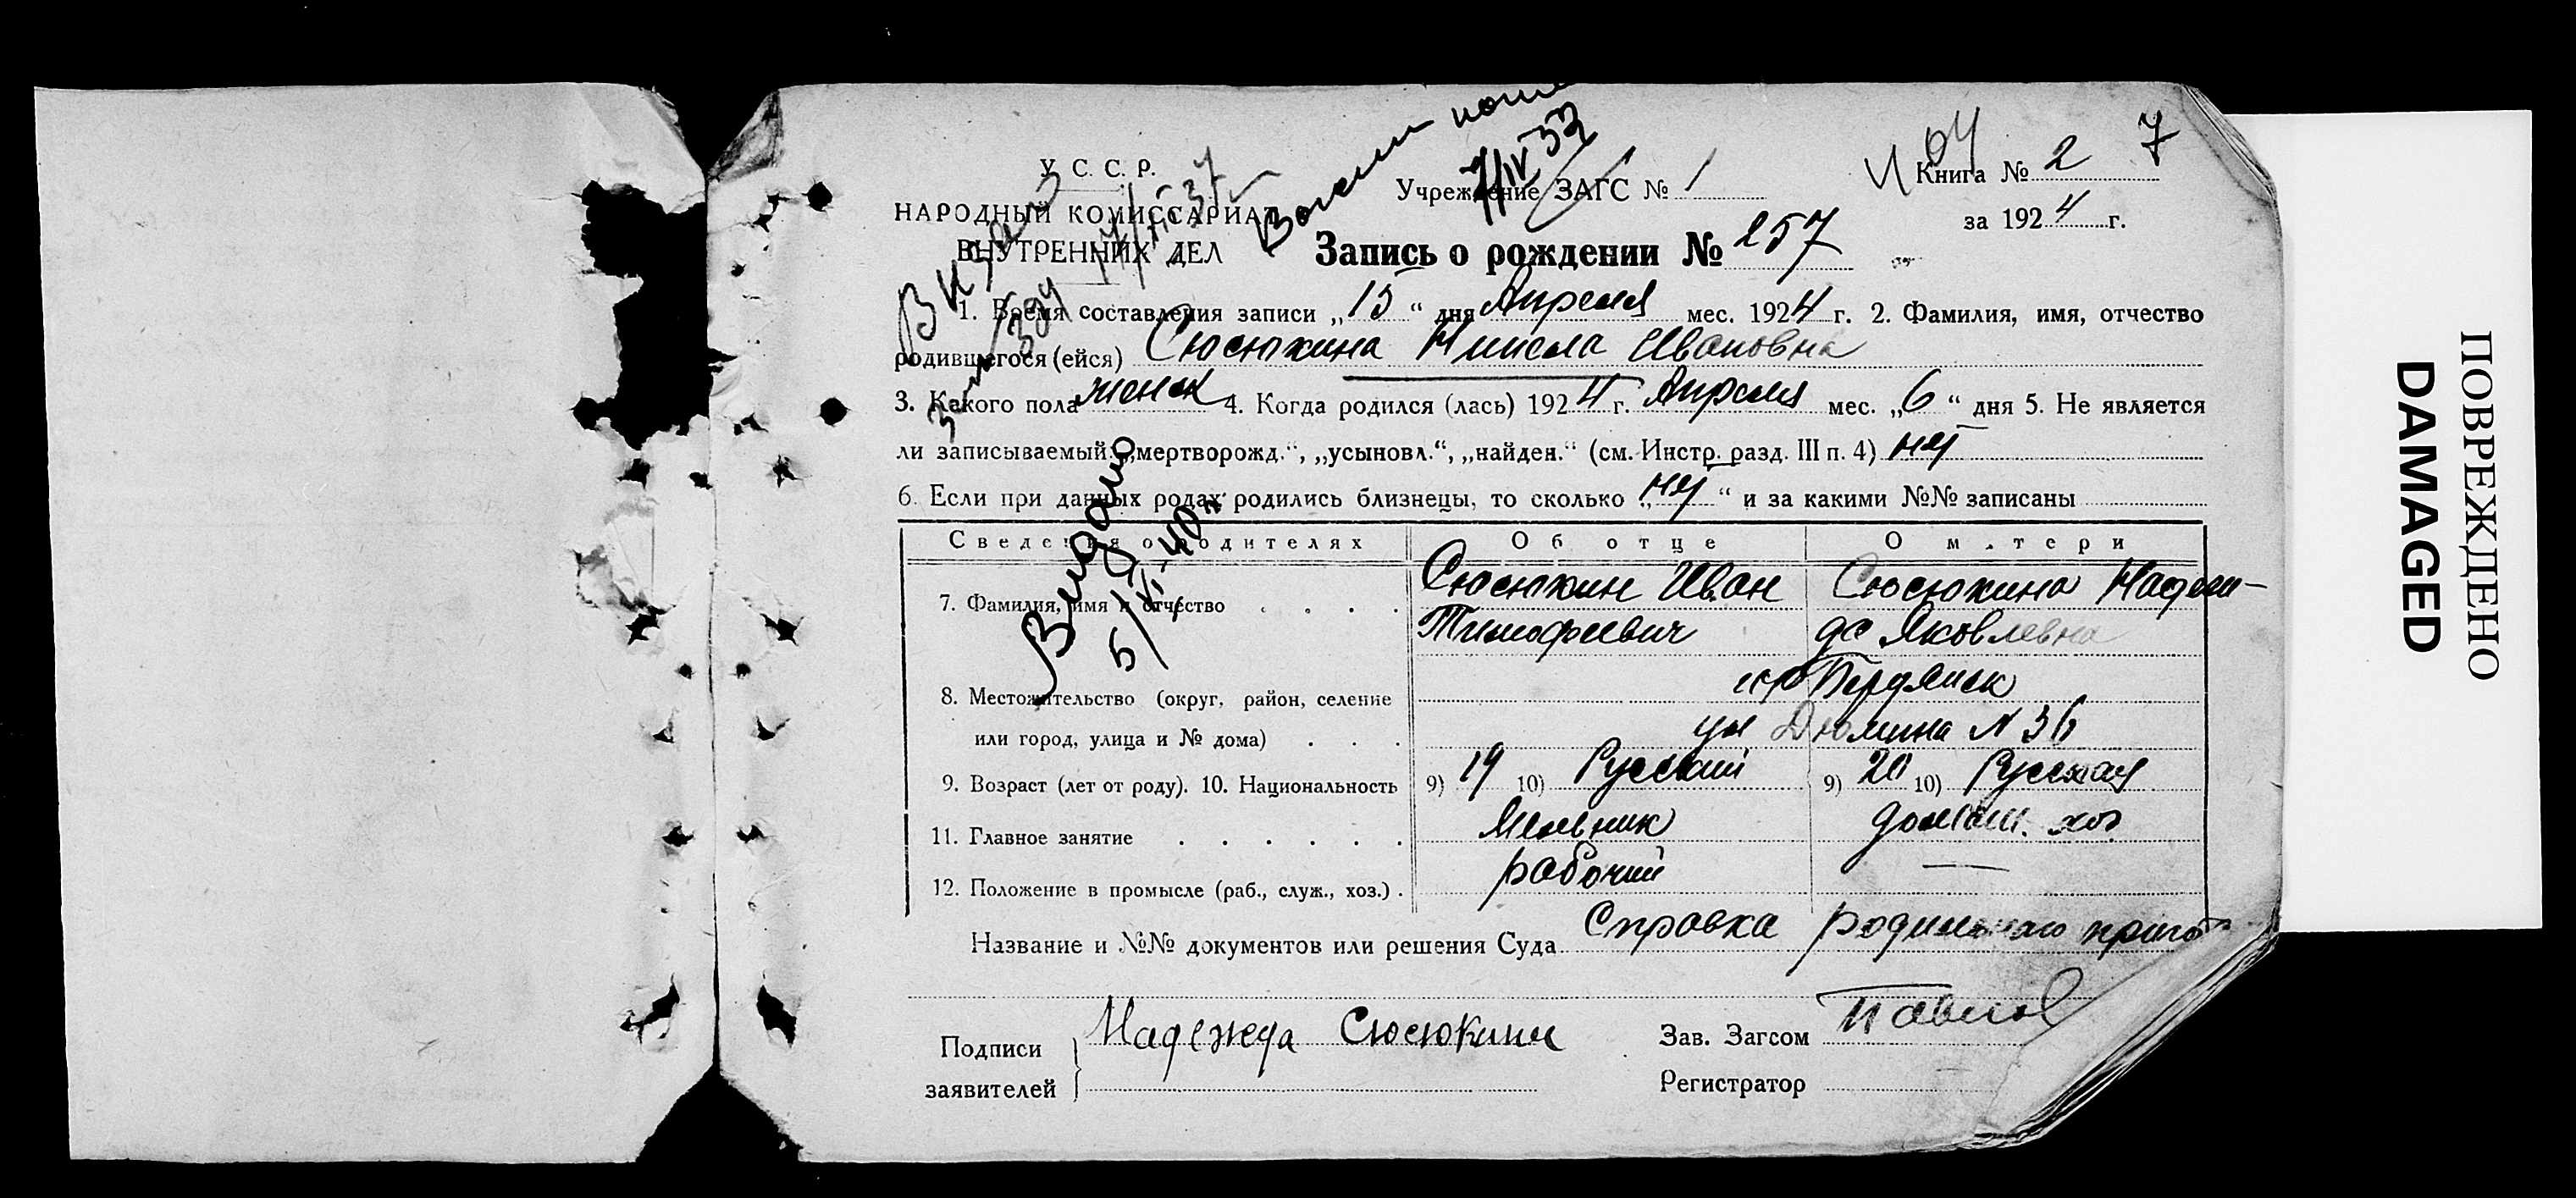 У. С. С. Р.
НАРОДНЫЙ КОМИССАРИАТ
ВНУТРЕННИХ ДЕЛ
7/IV 33
Учреждение ЗАГС № 1
Книга № 2
7
за 1924 г.
Запись о рождении № 257
1. Время составления записи „15“ дня Апреля мес. 1924 г. 2. Фамилия, имя, отчество
родившегося (ейся) Сюсюкина Нинела Ивановна
3. Какого пола женск 4. Когда родился (лась) 1924 г. Апреля мес. „6“ дня 5. Не является
ли записываемый: „мертворожд.“, „усыновл.“, „найден.“ (см. Инстр. разд. III п. 4) нет
6. Если при данных родах родились близнецы, то сколько „нет“ и за какими №№ записаны
Видано
5/VI-40
Сведения о родителях Об отце О матери
7. Фамилия, имя и отчество Сюсюкин Иван Сюсюкина Надеж-
Тимофеевич да Яковлевна
8. Местожительство (округ, район, селение гор Бердянск
или город, улица и № дома) ул Дюмина N 36
9. Возраст (лет от роду). 10. Национальность 9) 19 10) Русский 9) 20 10) Русская
11. Главное занятие Мельник домаш. хоз
12. Положение в промысле (раб., служ., хоз.) рабочий —
Название и №№ документов или решения Суда Справка родильного
Подписи заявителей Надежда Сюсюкина
Зав. Загсом Павлов
Регистратор
ПОВРЕЖДЕНО
DAMAGED